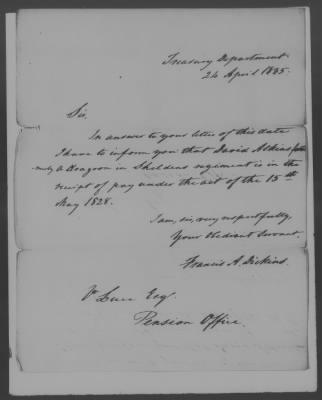 Treasury Department
24 April 1835.
Sir,
In answer to your letter of this date
I have to inform you that David Atkins for
merly a Dragoon in Sheldens regiment is in the
receipt of pay under the act of the 15th
May 1828.
I am, sir, very respectfully,
Your Obedient Servant.
Francis A. Dickins.
Esq.
Pension Office.